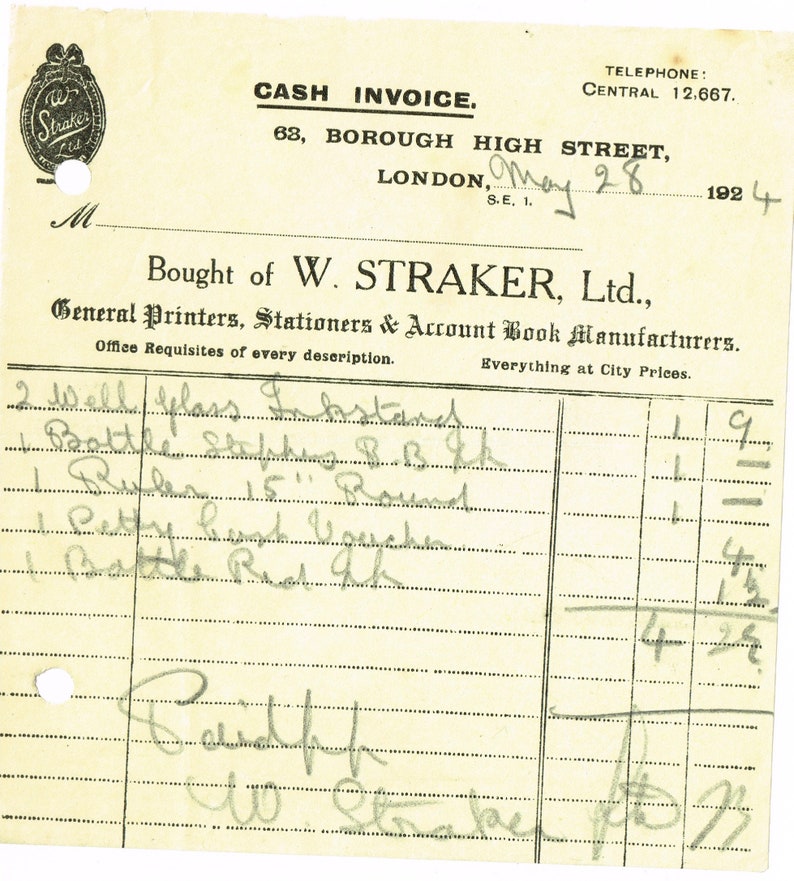 W
Straker
Ltd
TELEPHONE:
CENTRAL 12,667.
CASH INVOICE.
63, BOROUGH HIGH STREET,
LONDON, May 28 1924
S.E. 1.
M
Bought of W. STRAKER, Ltd.,
General Printers, Stationers & Account Book Manufacturers.
Office Requisites of every description. Everything at City Prices.
2 Well Glass Inkstand 1 9
1 Bottle Stephens B.B Ink 1 –
1 Ruler 15" Round 1 –
1 Petty Cash Voucher 4
1 Bottle Red Ink 1½
4 2½
Paid pp
W Straker Ltd